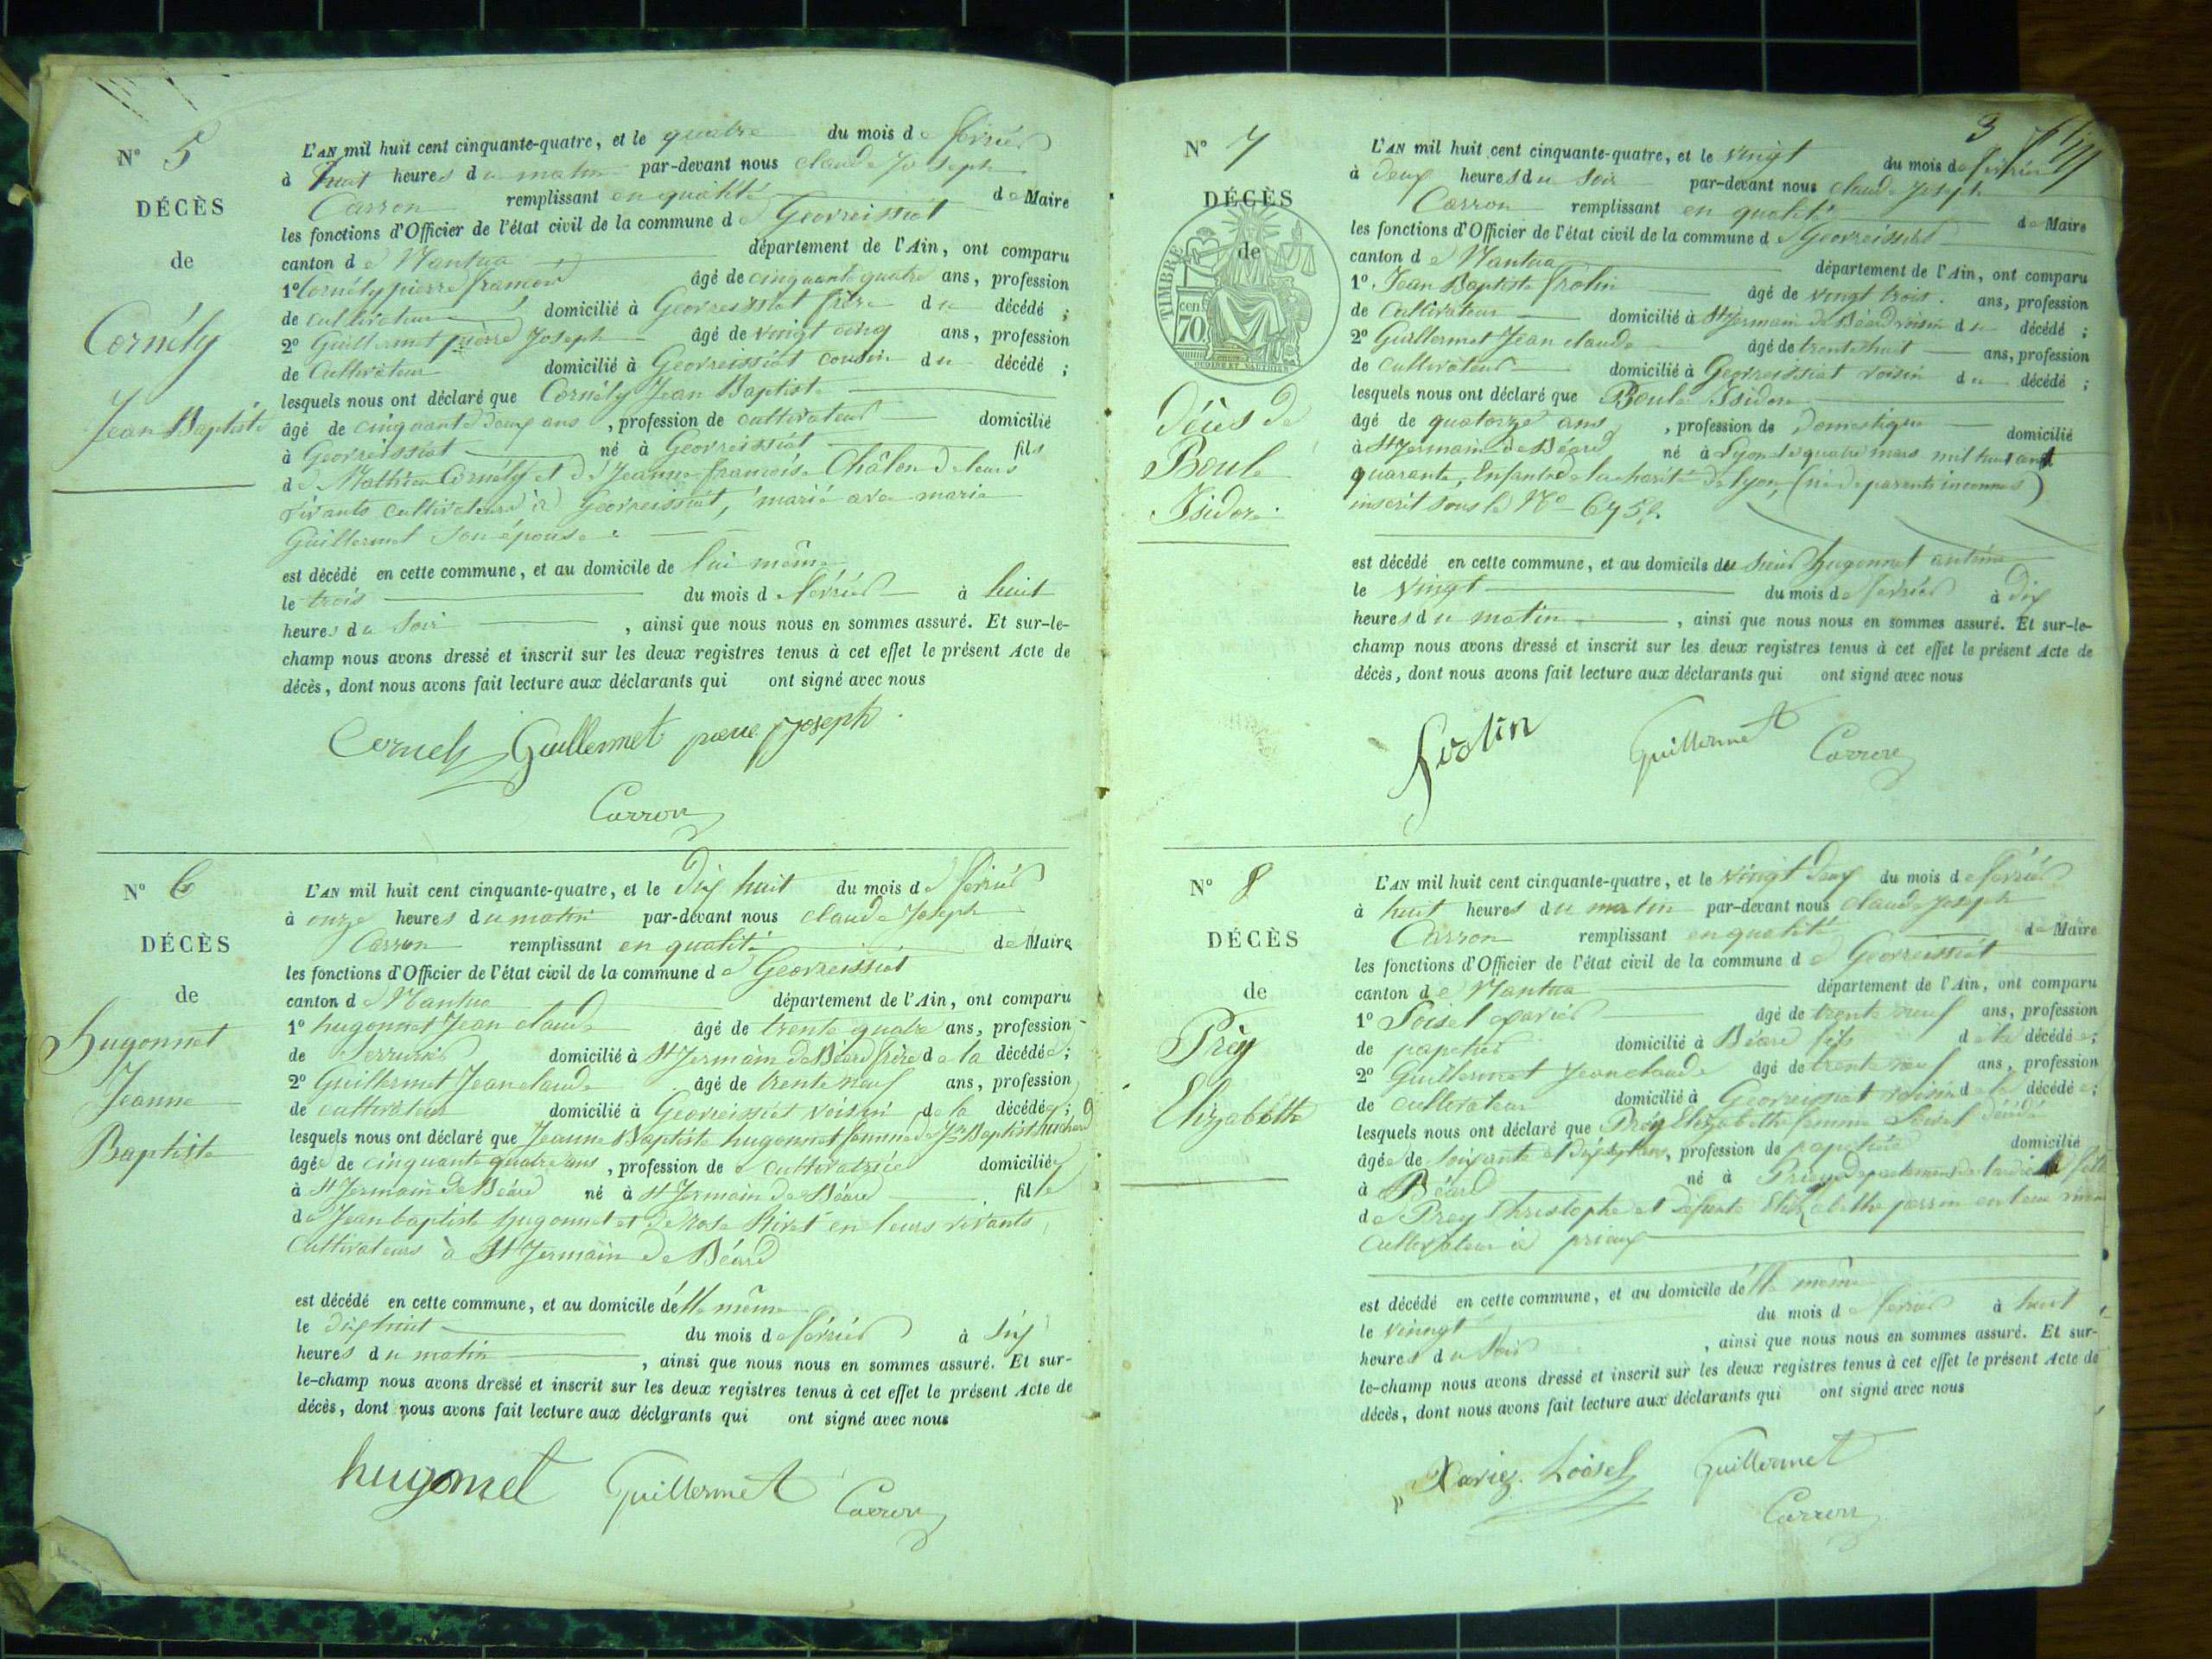 N° 5
DÉCÈS
de
Cornély
Jean Baptiste
L'AN mil huit cent cinquante-quatre, et le quatre du mois de février
à huit heures du matin par-devant nous claude Joseph
Carron remplissant en qualité de Maire
les fonctions d'Officier de l'état civil de la commune de Georreissiat
canton de Nantua département de l'Ain, ont comparu
1° Cornély pierre francois âgé de cinquante quatre ans, profession
de cultivateur domicilié à Georreissiat frère du décédé ;
2° Guillermet pierre Joseph âgé de vingt cinq ans, profession
de Cultivateur domicilié à Georreissiat cousin du décédé ;
lesquels nous ont déclaré que Cornély Jean Baptiste
âgé de cinquante deux ans, profession de cultivateur domicilié
à Georreissiat né à Georreissiat fils
de Mathieu Cornély et de Jeanne francoise Châlon de leurs
vivants cultivateurs à Georreissiat, marié avec marie
Guillermet son épouse
est décédé en cette commune, et au domicile de lui même
le trois du mois de février à huit
heures du soir, ainsi que nous nous en sommes assuré. Et sur-le-
champ nous avons dressé et inscrit sur les deux registres tenus à cet effet le présent Acte de
décès, dont nous avons fait lecture aux déclarants qui ont signé avec nous
Cornely Guillermet pierre joseph
Carron
N° 6
DÉCÈS
de
hugonnet
Jeanne
Baptiste
L'AN mil huit cent cinquante-quatre, et le dix huit du mois de février
à onze heures du matin par-devant nous claude Joseph
Carron remplissant en qualité de Maire
les fonctions d'Officier de l'état civil de la commune de Georreissiat
canton de Nantua département de l'Ain, ont comparu
1° hugonnet Jean claude âgé de trente quatre ans, profession
de Serrurier domicilié à St Jermain de Béard frère de la décédée ;
2° Guillermet Jean claude âgé de trente neuf ans, profession
de cultivateur domicilié à Georreissiat voisin de la décédée ;
lesquels nous ont déclaré que Jeanne Baptiste hugonnet femme de Jn Baptist
âgée de cinquante quatre ans, profession de cultivatrice domiciliée
à St Jermain de Béard né à St Jermain de Béard fille
de Jean baptiste hugonnet et de rose en leurs vivants
Cultivateurs à St Jermain de Béard
est décédé en cette commune, et au domicile d'elle même
le dix huit du mois de février à dix
heures du matin, ainsi que nous nous en sommes assuré. Et sur-
le-champ nous avons dressé et inscrit sur les deux registres tenus à cet effet le présent Acte de
décès, dont nous avons fait lecture aux déclarants qui ont signé avec nous
hugonnet Guillermet Carron
3
N° 7
DÉCÈS
de
TIMBRE
70 cent
Décès de
Boule
Isidore
L'AN mil huit cent cinquante-quatre, et le vingt du mois de février
à deux heures du soir par-devant nous claude Joseph
Carron remplissant en qualité de Maire
les fonctions d'Officier de l'état civil de la commune de Georreissiat
canton de Nantua département de l'Ain, ont comparu
1° Jean Baptiste frolin âgé de vingt trois ans, profession
de Cultivateur domicilié à St Jermain de Béard voisin du décédé ;
2° Guillermet Jean claude âgé de trente huit ans, profession
de cultivateur domicilié à Georreissiat voisin du décédé ;
lesquels nous ont déclaré que Boule Isidore
âgé de quatorze ans, profession de Domestique domicilié
à St Jermain de Béard né à Lyon le quatre mars mil huit cent
quarante, Enfant de la charité de Lyon, (né de parents inconnus)
inscrit sous le No
est décédé en cette commune, et au domicile du sieur hugonnet antoine
le vingt du mois de février à dix
heures du matin, ainsi que nous nous en sommes assuré. Et sur-le-
champ nous avons dressé et inscrit sur les deux registres tenus à cet effet le présent Acte de
décès, dont nous avons fait lecture aux déclarants qui ont signé avec nous
frolin Guillermet Carron
N° 8
DÉCÈS
de
Prèy
Elizabeth
L'AN mil huit cent cinquante-quatre, et le vingt deux du mois de février
à huit heures du matin par-devant nous claude Joseph
Carron remplissant en qualité de Maire
les fonctions d'Officier de l'état civil de la commune de Georreissiat
canton de Nantua département de l'Ain, ont comparu
1° Loisel xavier âgé de trente neuf ans, profession
de papetier domicilié à Béard fils de la décédée ;
2° Guillermet Jean claude âgé de trente neuf ans, profession
de cultivateur domicilié à Georreissiat voisin de la décédée ;
lesquels nous ont déclaré que Prèy Elizabethe femme Loisel
âgée de soixante et dix ans, profession de papetière domicilié
à Béard né à département de fille
de Prey Christophe et défunte Elizabethe perrin en leur vivant
Cultivateur à prieux
est décédé en cette commune, et au domicile d'elle même
le vingt du mois de février à huit
heures du soir, ainsi que nous nous en sommes assuré. Et sur-
le-champ nous avons dressé et inscrit sur les deux registres tenus à cet effet le présent Acte de
décès, dont nous avons fait lecture aux déclarants qui ont signé avec nous
Xavier Loisel Guillermet
Carron